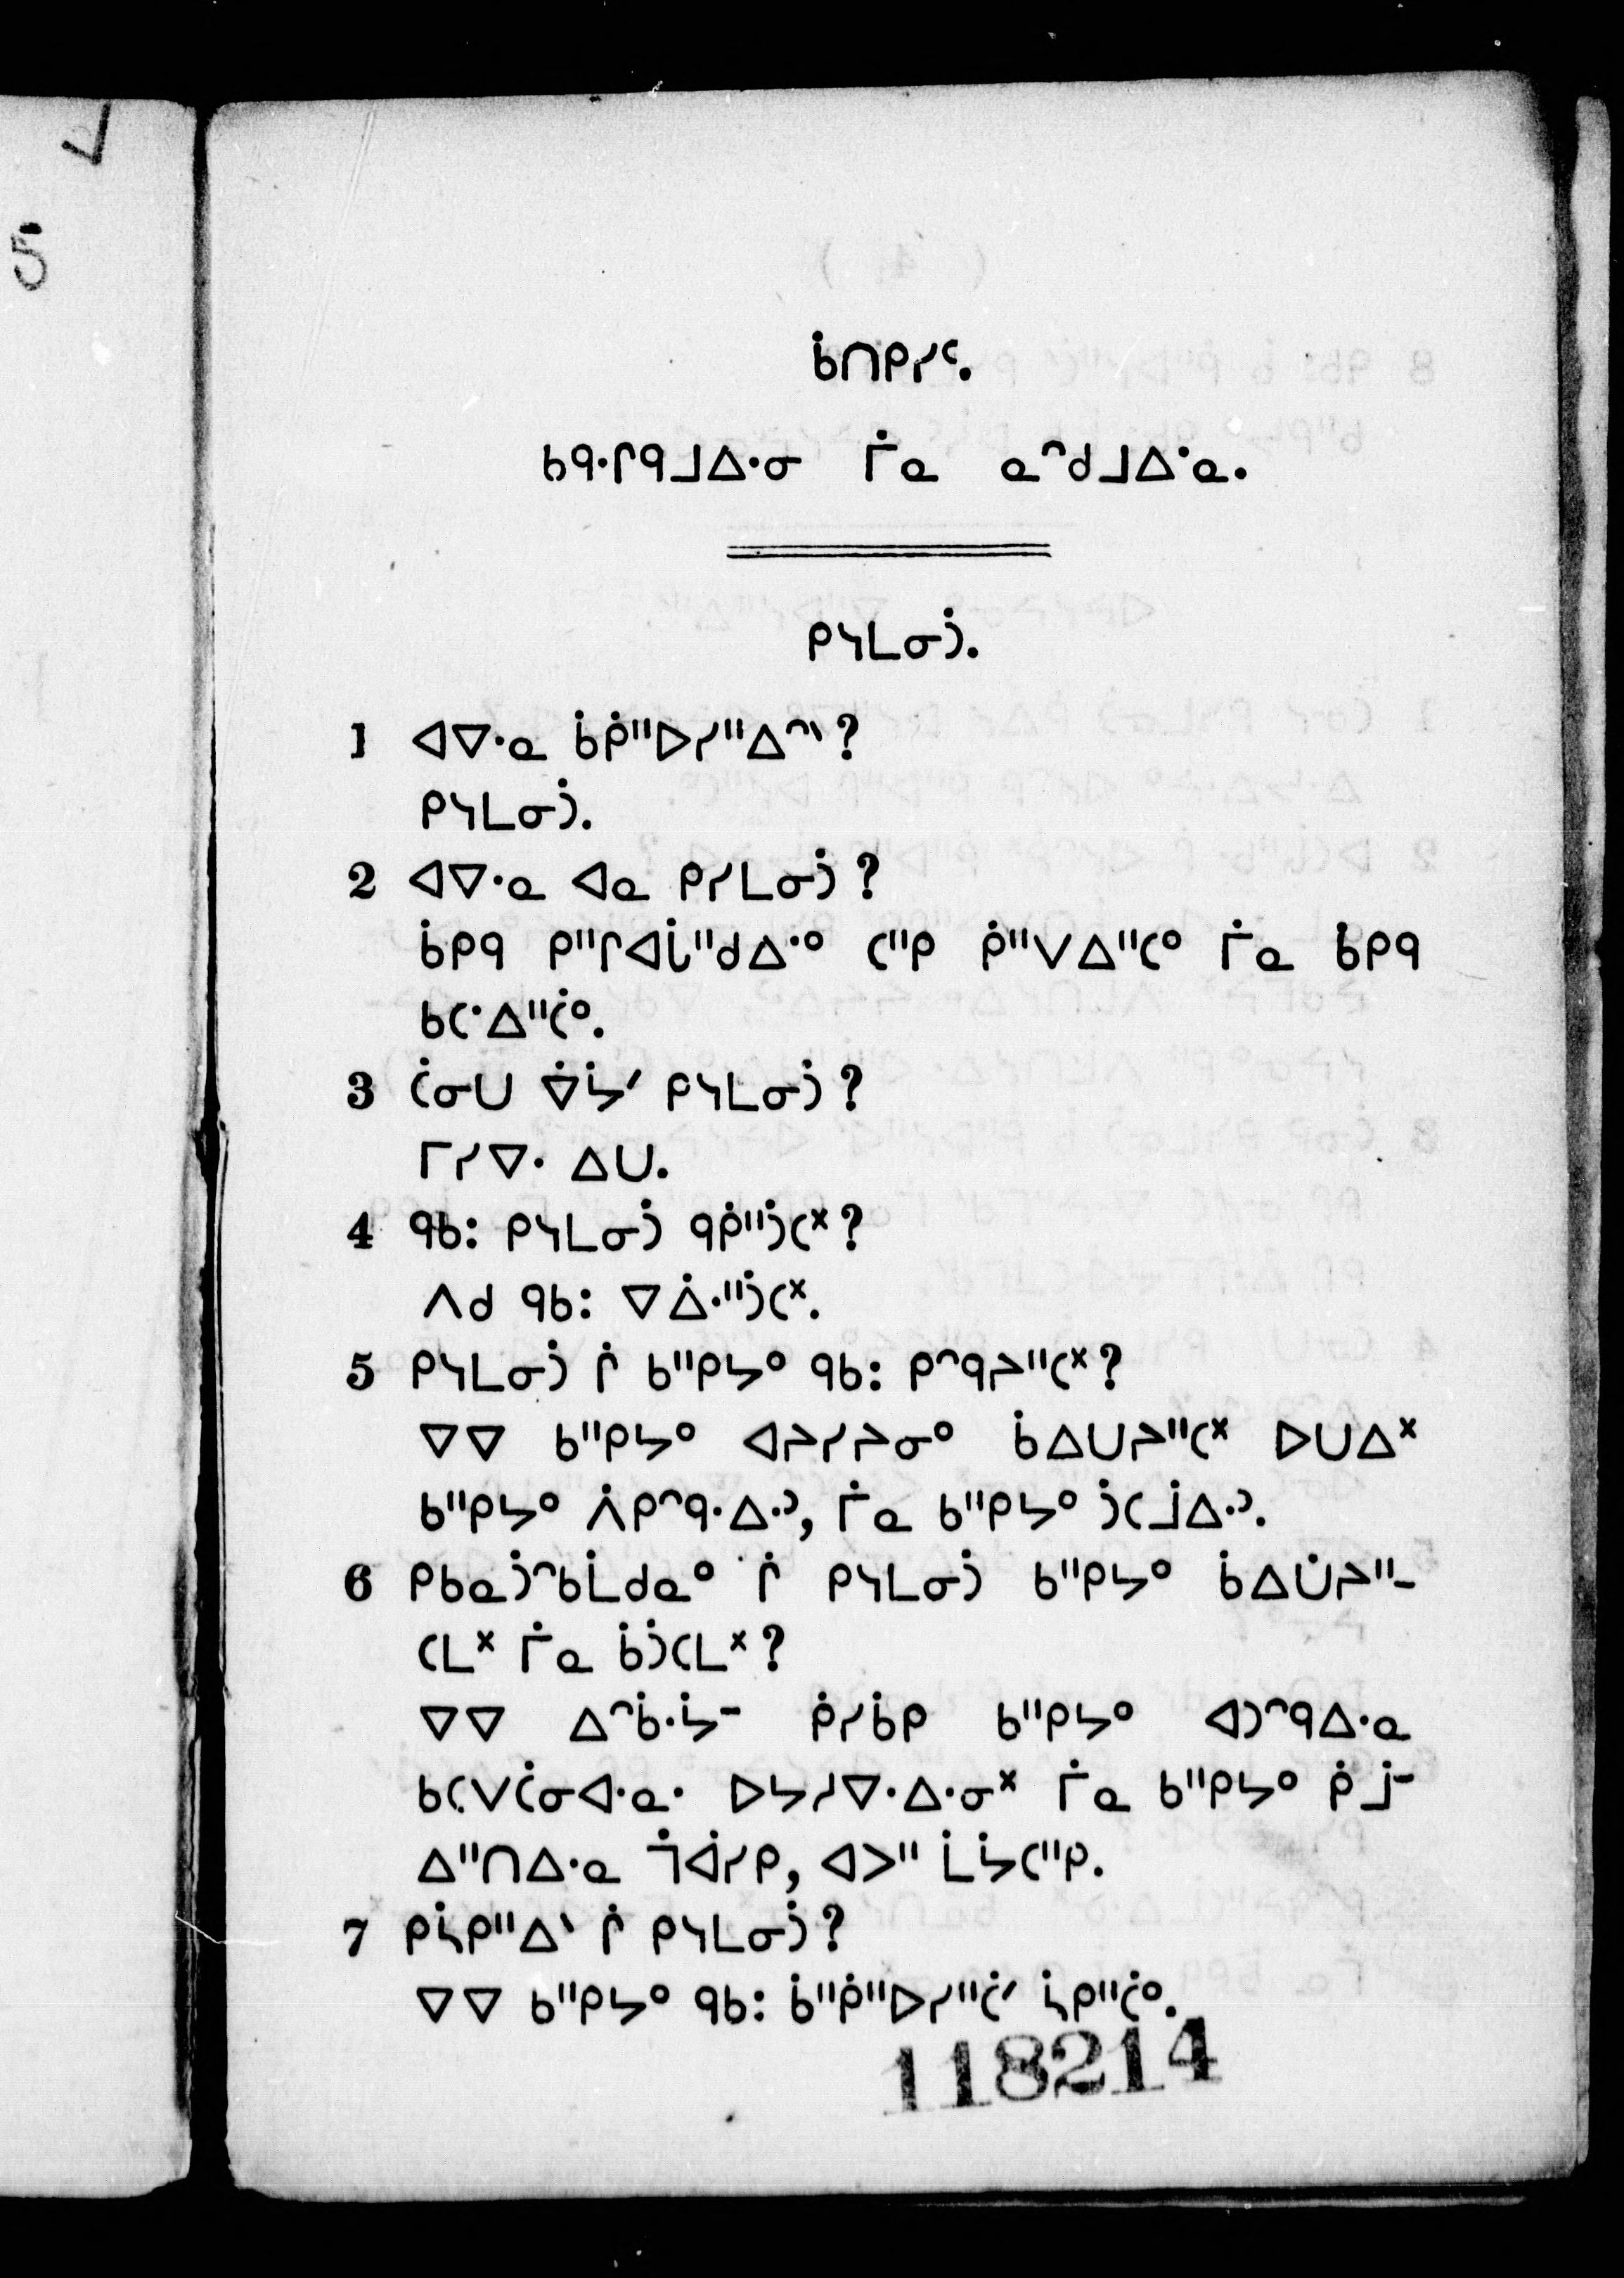 ᑳᑎᑭᓯᕦ.
ᑲᑫᐧᒋᑫᒧᐃᐧᓂ ᒦᓇ ᓇᐢᑯᒧᐃᐧᓇ.
ᑭᓴᒪᓂᑑ.
1 ᐊᐁᐧᓇ ᑳᑮᐦᐅᓯᐦᐃᐢᐠ?
ᑭᓴᒪᓂᑑ.
2 ᐊᐁᐧᓇ ᐊᓇ ᑭᓯᒪᓂᑑ?
ᑳᑭᑫ ᑭᐦᒋᐊᒑᐦᑯᐃᐧᐤ ᑕᐦᑭ ᑮᐦᐯᐃᐦᑕᐤ ᒦᓇ ᑳᑭᑫ
ᑲᑕᐧᐃᐦᑖᐤ.
3 ᑖᓂᑌ � ᐁᔮᐟ ᑭᓴᒪᓂᑑ?
ᒥᓯᐁᐧ ᐃᑌ.
4 ᑫᑲ: ᑭᓴᒪᓂᑑ ᑫᑮᐦᑑᑕᕽ?
ᐱᑯ ᑫᑲ: ᐁᐄᐧᐦᑑᑕᕽ.
5 ᑭᓴᒪᓂᑑ ᒌ ᑲᐦᑭᔭᐤ ᑫᑲ: ᑭᐢᑫᔨᐦᑕᕽ?
ᐁᐁ ᑲᐦᑭᔭᐤ ᐊᔨᓯᔨᓂᐤ ᑳᐃᑌᔨᐦᑕᕽ ᐅᑌᐃᕽ
ᑲᐦᑭᔭᐤ ᐲᑭᐢᑫᐧᐃᐧᐣ, ᒦᓇ ᑲᐦᑭᔭᐤ ᑑᑕᒨᐃᐧᐣ.
6 ᑭᑲᓇᑑᐢᑲᒫᑯᓇᐤ ᒌ ᑭᓴᒪᓂᑑ ᑲᐦᑭᔭᐤ ᑳᐃᑌᔨᐦ-
ᑕᒪᕽ ᒦᓇ ᑳᑑᑕᒪᕽ?
ᐁᐁ ᐃᐢᑳᐧᔮᐨ ᑮᓯᑳᑭ ᑲᐦᑭᔭᐤ ᐊᑐᐢᑫᐃᐧᓇ
ᑲᑕᐯᑖᓂᐊᐧᓇᐧ ᐅᔭᓱᐁᐧᐃᐧᓂᕽ ᒦᓇ ᑲᐦᑭᔭᐤ ᑮᒨᐨ
ᐃᐦᑎᐃᐧᓇ ᒣᐋᓯᑭ, ᐊᐳᐦ ᒫᔮᑕᐦᑭ.
7 ᑭᓵᑭᐦᐃᐠ ᒌ ᑭᓴᒪᓂᑑ?
ᐁᐁ ᑲᐦᑭᔭᐤ ᑫᑲ: ᑳᐦᑮᐦᐅᓯᐦᑖᐟ ᓵᑭᐦᑖᐤ.
118214